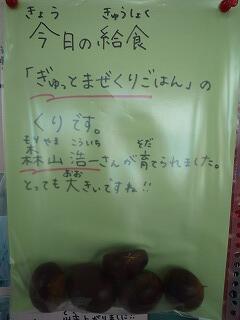 きょう きゅうしょく
今日の給食
「ぎゅっとまぜくりごはん」の
くりです。
もりやま こういち そだ
森山 浩一さんが育てられました。
おお
とっても大きいですね!!